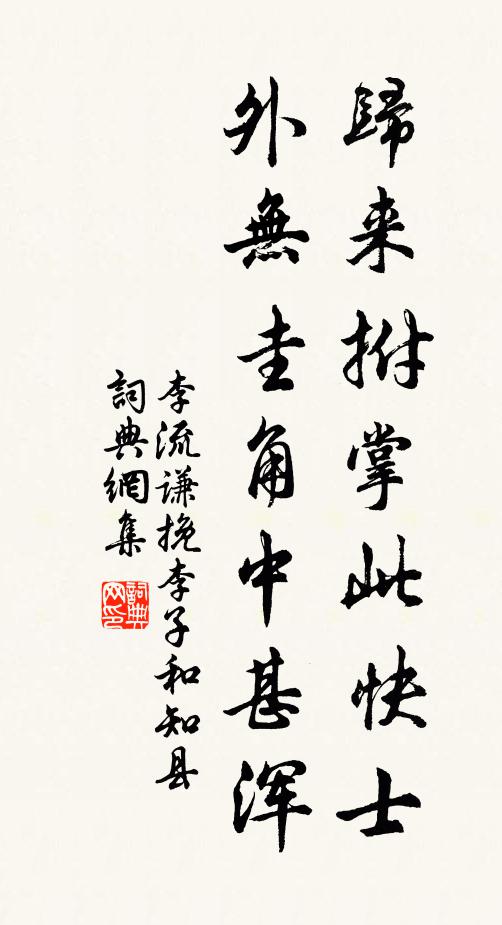 歸来拊掌此快士
外無圭角中甚浑
李流谦挽李子和知县
詞典網集
詞典网印